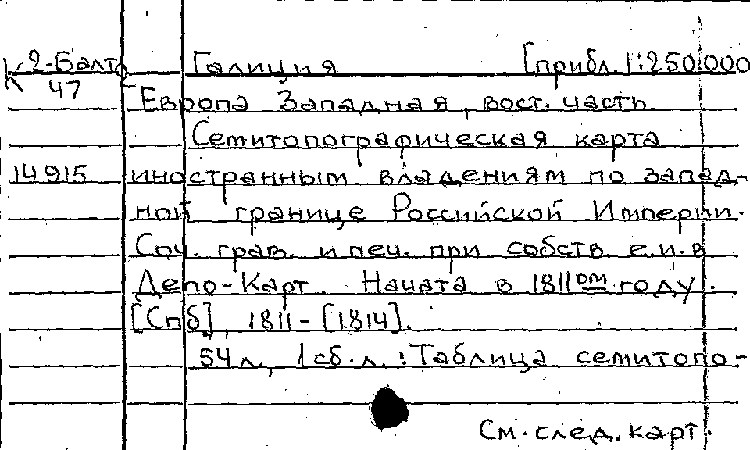 К 2-Балт Галиция [прибл. 1:250.000
47
Европа Западная, вост. часть
Семитопографическая карта
14915 иностранным владениям по запад-
ной границе Российской Империи.
Соч. грав. и печ. при собств. е.и.в
Депо-Карт. Начата в 1811ом году.
[Спб], 1811-[1814].
54 л., 1 сб. л.: Таблица семитопо-
См. след. карт.